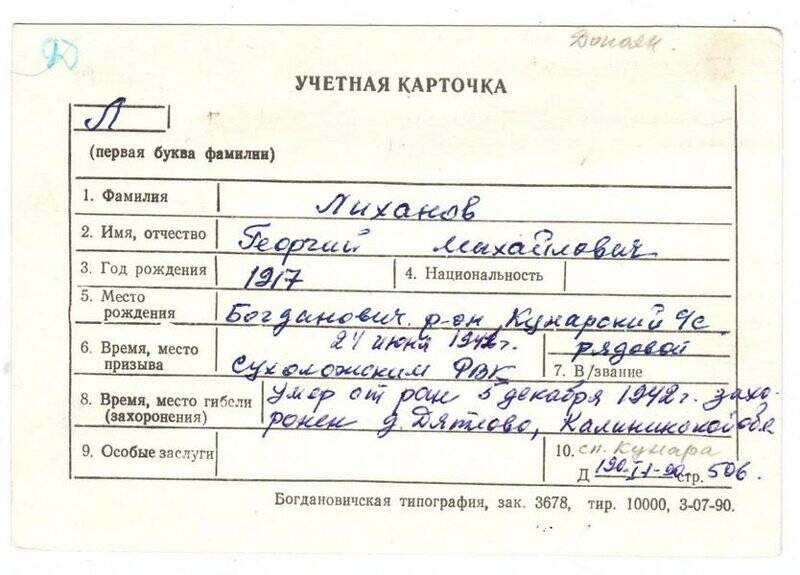 Д
Допол.
УЧЕТНАЯ КАРТОЧКА
Л
(первая буква фамилии)
1. Фамилия Лиханов
2. Имя, отчество Георгий Михайлович
3. Год рождения 1917 4. Национальность
5. Место рождения Богданович. р-он, Кунарский с/с
6. Время, место призыва 24 июня 1942 г. Сухоложским РВК
рядовой
7. В/звание
8. Время, место гибели (захоронения) Умер от ран 5 декабря 1942 г. захо-
ронен д. Дятлово, Калининской обл
9. Особые заслуги
10. сп. Кунара
Д стр. 506.
Богдановичская типография, зак. 3678, тир. 10000, 3-07-90.